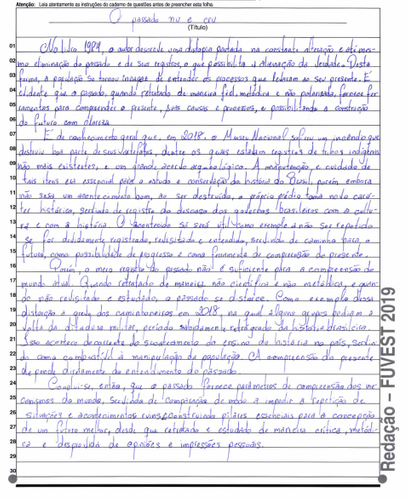 Atenção: Leia atentamente as instruções do caderno de questões antes de preencher esta folha.
O passado nu e cru
(Título)
01 No livro 1984, o autor descreve uma distopia pautada na constante alteração e até mes-
02 mo eliminação do passado e de seus registros, o que possibilita a alteração da verdade. Desta
03 forma, a população se torna incapaz de entender os processos que levaram ao seu presente. É
04 evidente que o passado, quando retratado de maneira fiel, metódica e não polarizada, fornece fer-
05 ramentas para compreender o presente, suas causas e processos, e possibilitando a construção
06 do futuro com clareza.
07 É de conhecimento geral que, em 2018, o Museu Nacional sofreu um incêndio que
08 destruiu boa parte de seus artefatos, dentre os quais estavam registros de tribos indígenas
09 não mais existentes, e um grande acervo arqueológico. A manutenção e cuidado de
10 tais itens era essencial para o estudo e conservação da história do Brasil, porém, embora
11 não seja um acontecimento bom, ao ser destruído, o próprio prédio toma novo cará-
12 ter histórico, servindo de registro do descaso dos governos brasileiros com a cultu-
13 ra e com a história. O ocorrido só será útil como exemplo a não ser repetido
14 se for devidamente registrado, revisitado e entendido, servindo de caminho para o
15 futuro, como possibilidade de progresso e como ferramenta de compreensão do presente.
16 Porém, o mero registro do passado não é suficiente para a compreensão do
17 mundo atual. Quando retratado de maneira não científica e não metódica, e quan-
18 do não revisitado e estudado, o passado se distorce. Como exemplo dessa
19 distorção a greve dos caminhoneiros em 2018, na qual alguns grupos pediam a
20 volta da ditadura militar, período sabidamente retrógrado da história brasileira.
21 Isso acontece decorrente do sucateamento do ensino de história no país, servin-
22 do como combustível à manipulação da população. A compreensão do presente
23 depende diretamente do entendimento do passado.
24 Conclui-se, então, que o passado fornece parâmetros de compreensão dos me-
25 canismos do mundo, servindo de comparação de modo a impedir a repetição de
26 situações e acontecimentos ruins, construindo pilares essenciais para a concepção
27 de um futuro melhor, desde que retratado e estudado de maneira crítica, metódi-
28 ca e desprovida de opiniões e impressões pessoais.
29
30
Redação – FUVEST 2019